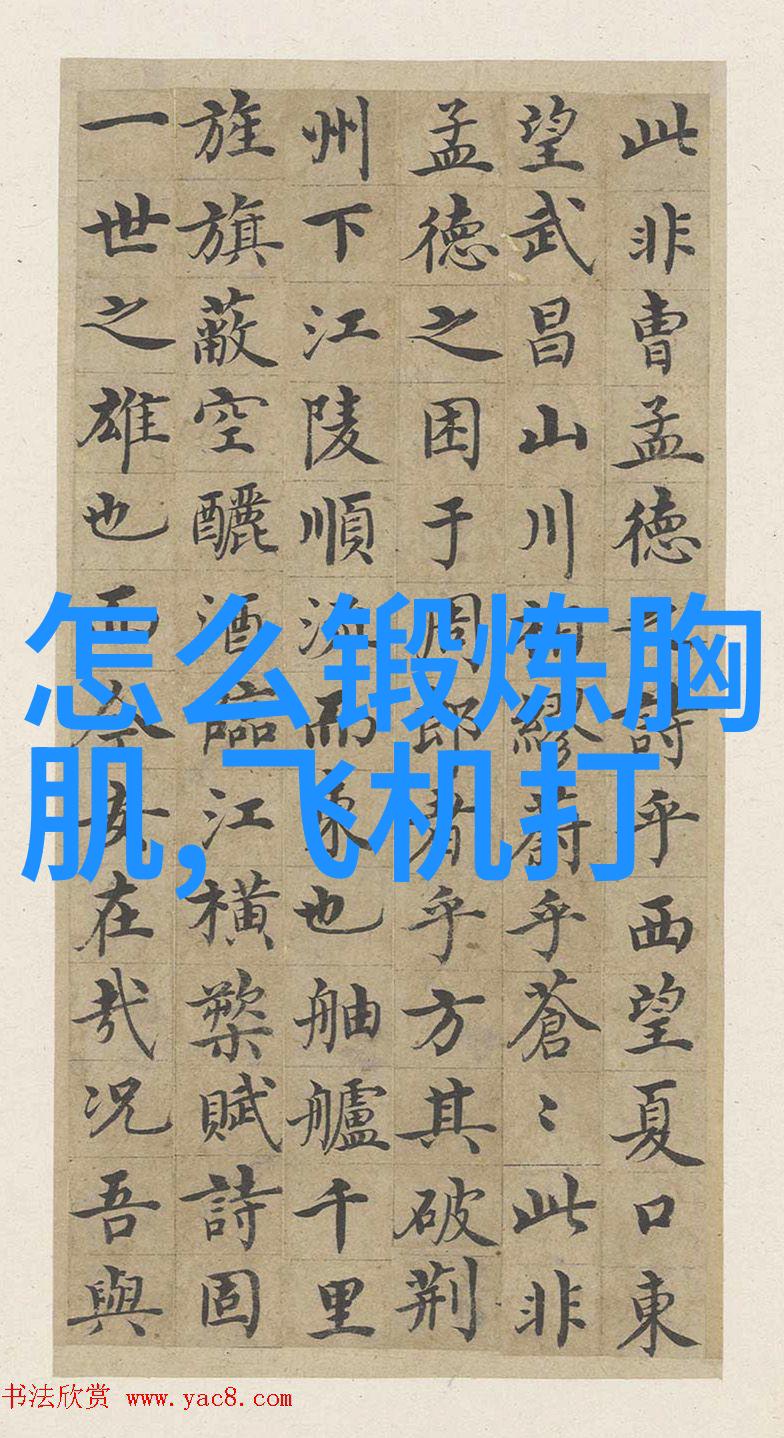 此非曹孟德之詩乎西望夏口東
望武昌山川相繆蔚乎蒼〻此非
孟德之困于周郎者乎方其破荊
州下江陵順流而東也舳艫千里
旌旗蔽空釃酒臨江橫槊賦詩固
一世之雄也而今安在哉况吾與
怎么锻炼胸
肌,飞机打
书法欣赏 www.yac8.com